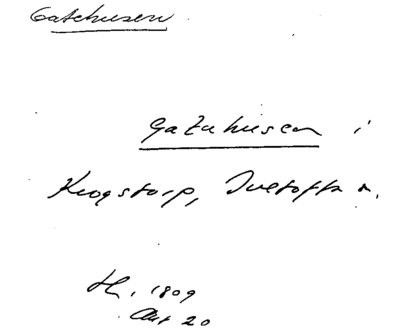 Gatehusen
Gatuhusen i
Krogstorp, Tvetofta s.
H. 1809
Akt 20